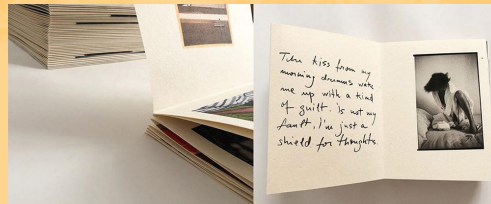 The kiss from my
morning dreams wake
me up with a kind
of guilt. Is not my
fault. I'm just a
shield for thoughts